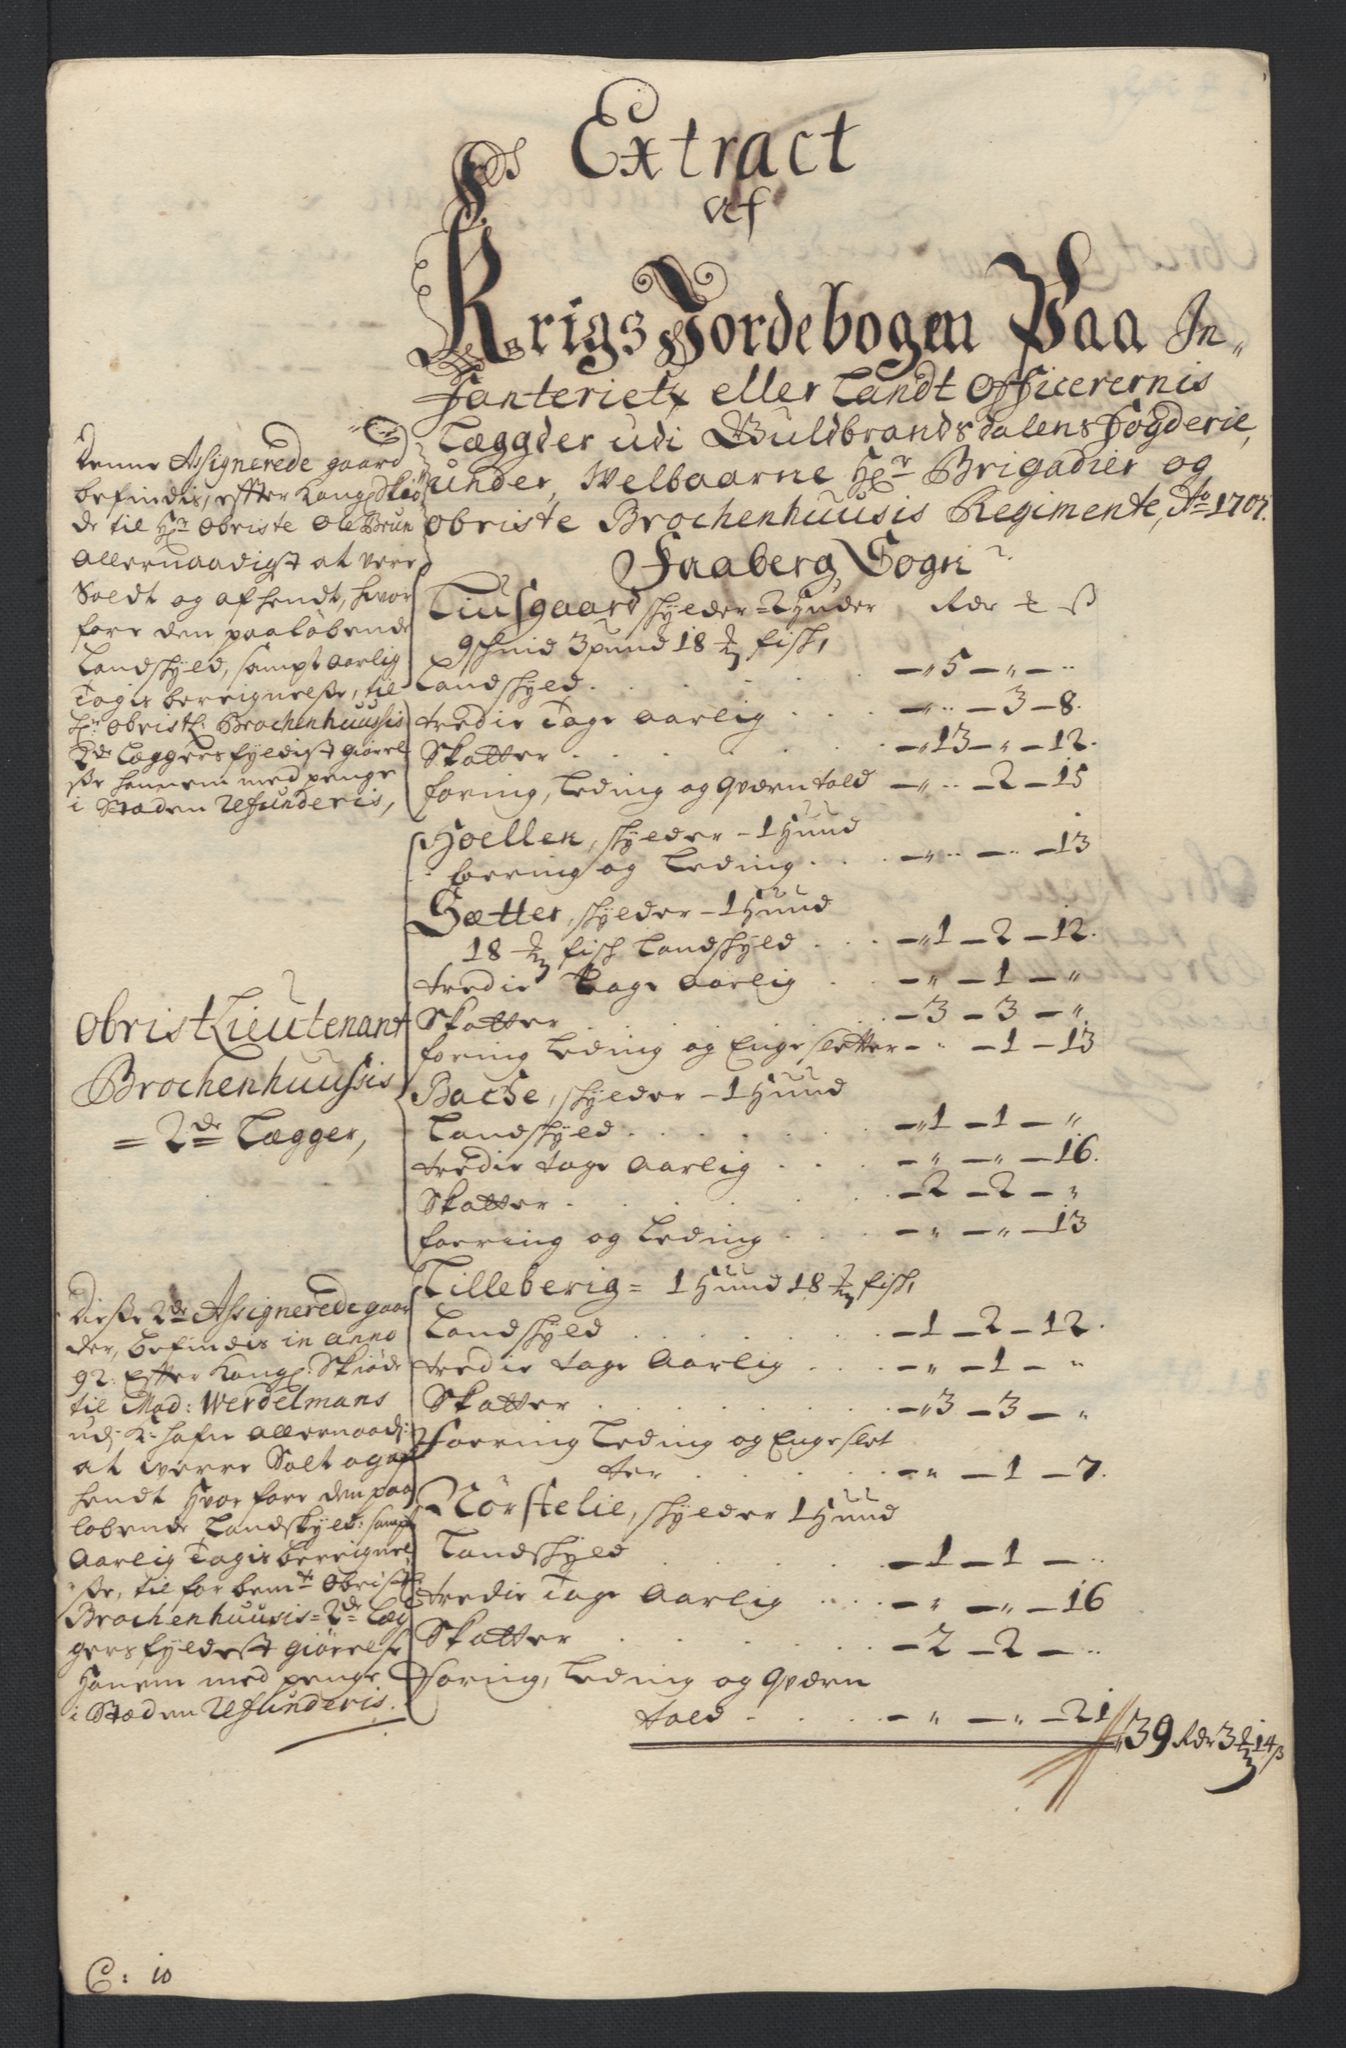 Extract
Af
Krigs Jordebogen Paa In„
fanteriets eller Landt Officerernis
Læggder udi Guldbrandsdalens Fogderie,
under, Welbaarne Hr Brigadier og
Obriste Brochenhuusis Regimente, Ao 1707.
Faaberg Sogn
Denne Assignerede gaard
befindis, effter Kongl Skiø
de til Hr Obriste Ole Brun
Allernaadigst at vere
Soldt og afhendt, hvor
fore den paaløbende
Landskyld, sampt aarlig
Tagis bereignelse, til
Hr Obristl Brochenhuusis
2de Læggers fyldist giørel
se hannem med penge
i Staden Refunderis,
Obrist Lieutenant
Brochenhuusis
= 2de Lægger,
Disse 2de Assignerede gaar
der, befindis in anno
92: Effter Kongl: Skiøde
til Mad: Werdelmans
udi K: hafn allernaadi:
at verre Solt og af
hendt Hvor fore den paa
løbende Landskyld: sampt
Aarlig Tagis bereignel
se, til for bemte Obrist
Brochenhuusis = 2de Læg
gers fyldest giørelse
Hanem med penge
i Stæden Refunderis.
Tiusgaard skylder 2 Huder Rdr ß
9 schind 3 pund 18 fisch,
Landskyld . . . — „ 5 — „ — „
tredie Tage Aarlig . . . — „ — 3 — 8.
Skatter . . . — „ 13 — „ — 12.
foring, Leding og Qværntold — „ — 2 — 15
Hoellen, skylder — 1 Huud
foering og Leding . . . — „ — „ — 13
Sætter, skylder — 1 Huud
18 fisch Landskyld . . . — „ 1 — 2 — 12.
tredie Tage Aarlig . . — „ — 1 — „
Skatter . . . — 3 — 3 — „
foring Leding og Engesletter — „ — 1 — 13
Bache, skylder — 1 Huud
Landskyld . . . — „ 1 — 1 — „
tredie tage Aarlig . . . — „ — „ — 16.
Skatter . . . — 2 — 2 — „
foering og Leding . . . — „ — „ — 13
Lilleberig = 1 Huud 18 fisch,
Landskyld . . . — 1 — 2 — 12.
tredie tage Aarlig . . . — „ — 1 — „
Skatter . . . — „ 3 — 3 — „
Foering Leding og Engeslet
ter . . . — „ — 1 — 7.
Nørstelie, skylder 1 Huud
Landskyld . . . — 1 — 1 — „
tredie Tage Aarlig . . . — „ — „ — 16
Skatter . . . — 2 — 2 — „
Foring, Leding og Qværn
told . . . — „ — „ — 21
39 Rdr 3 14 ß
C: 10